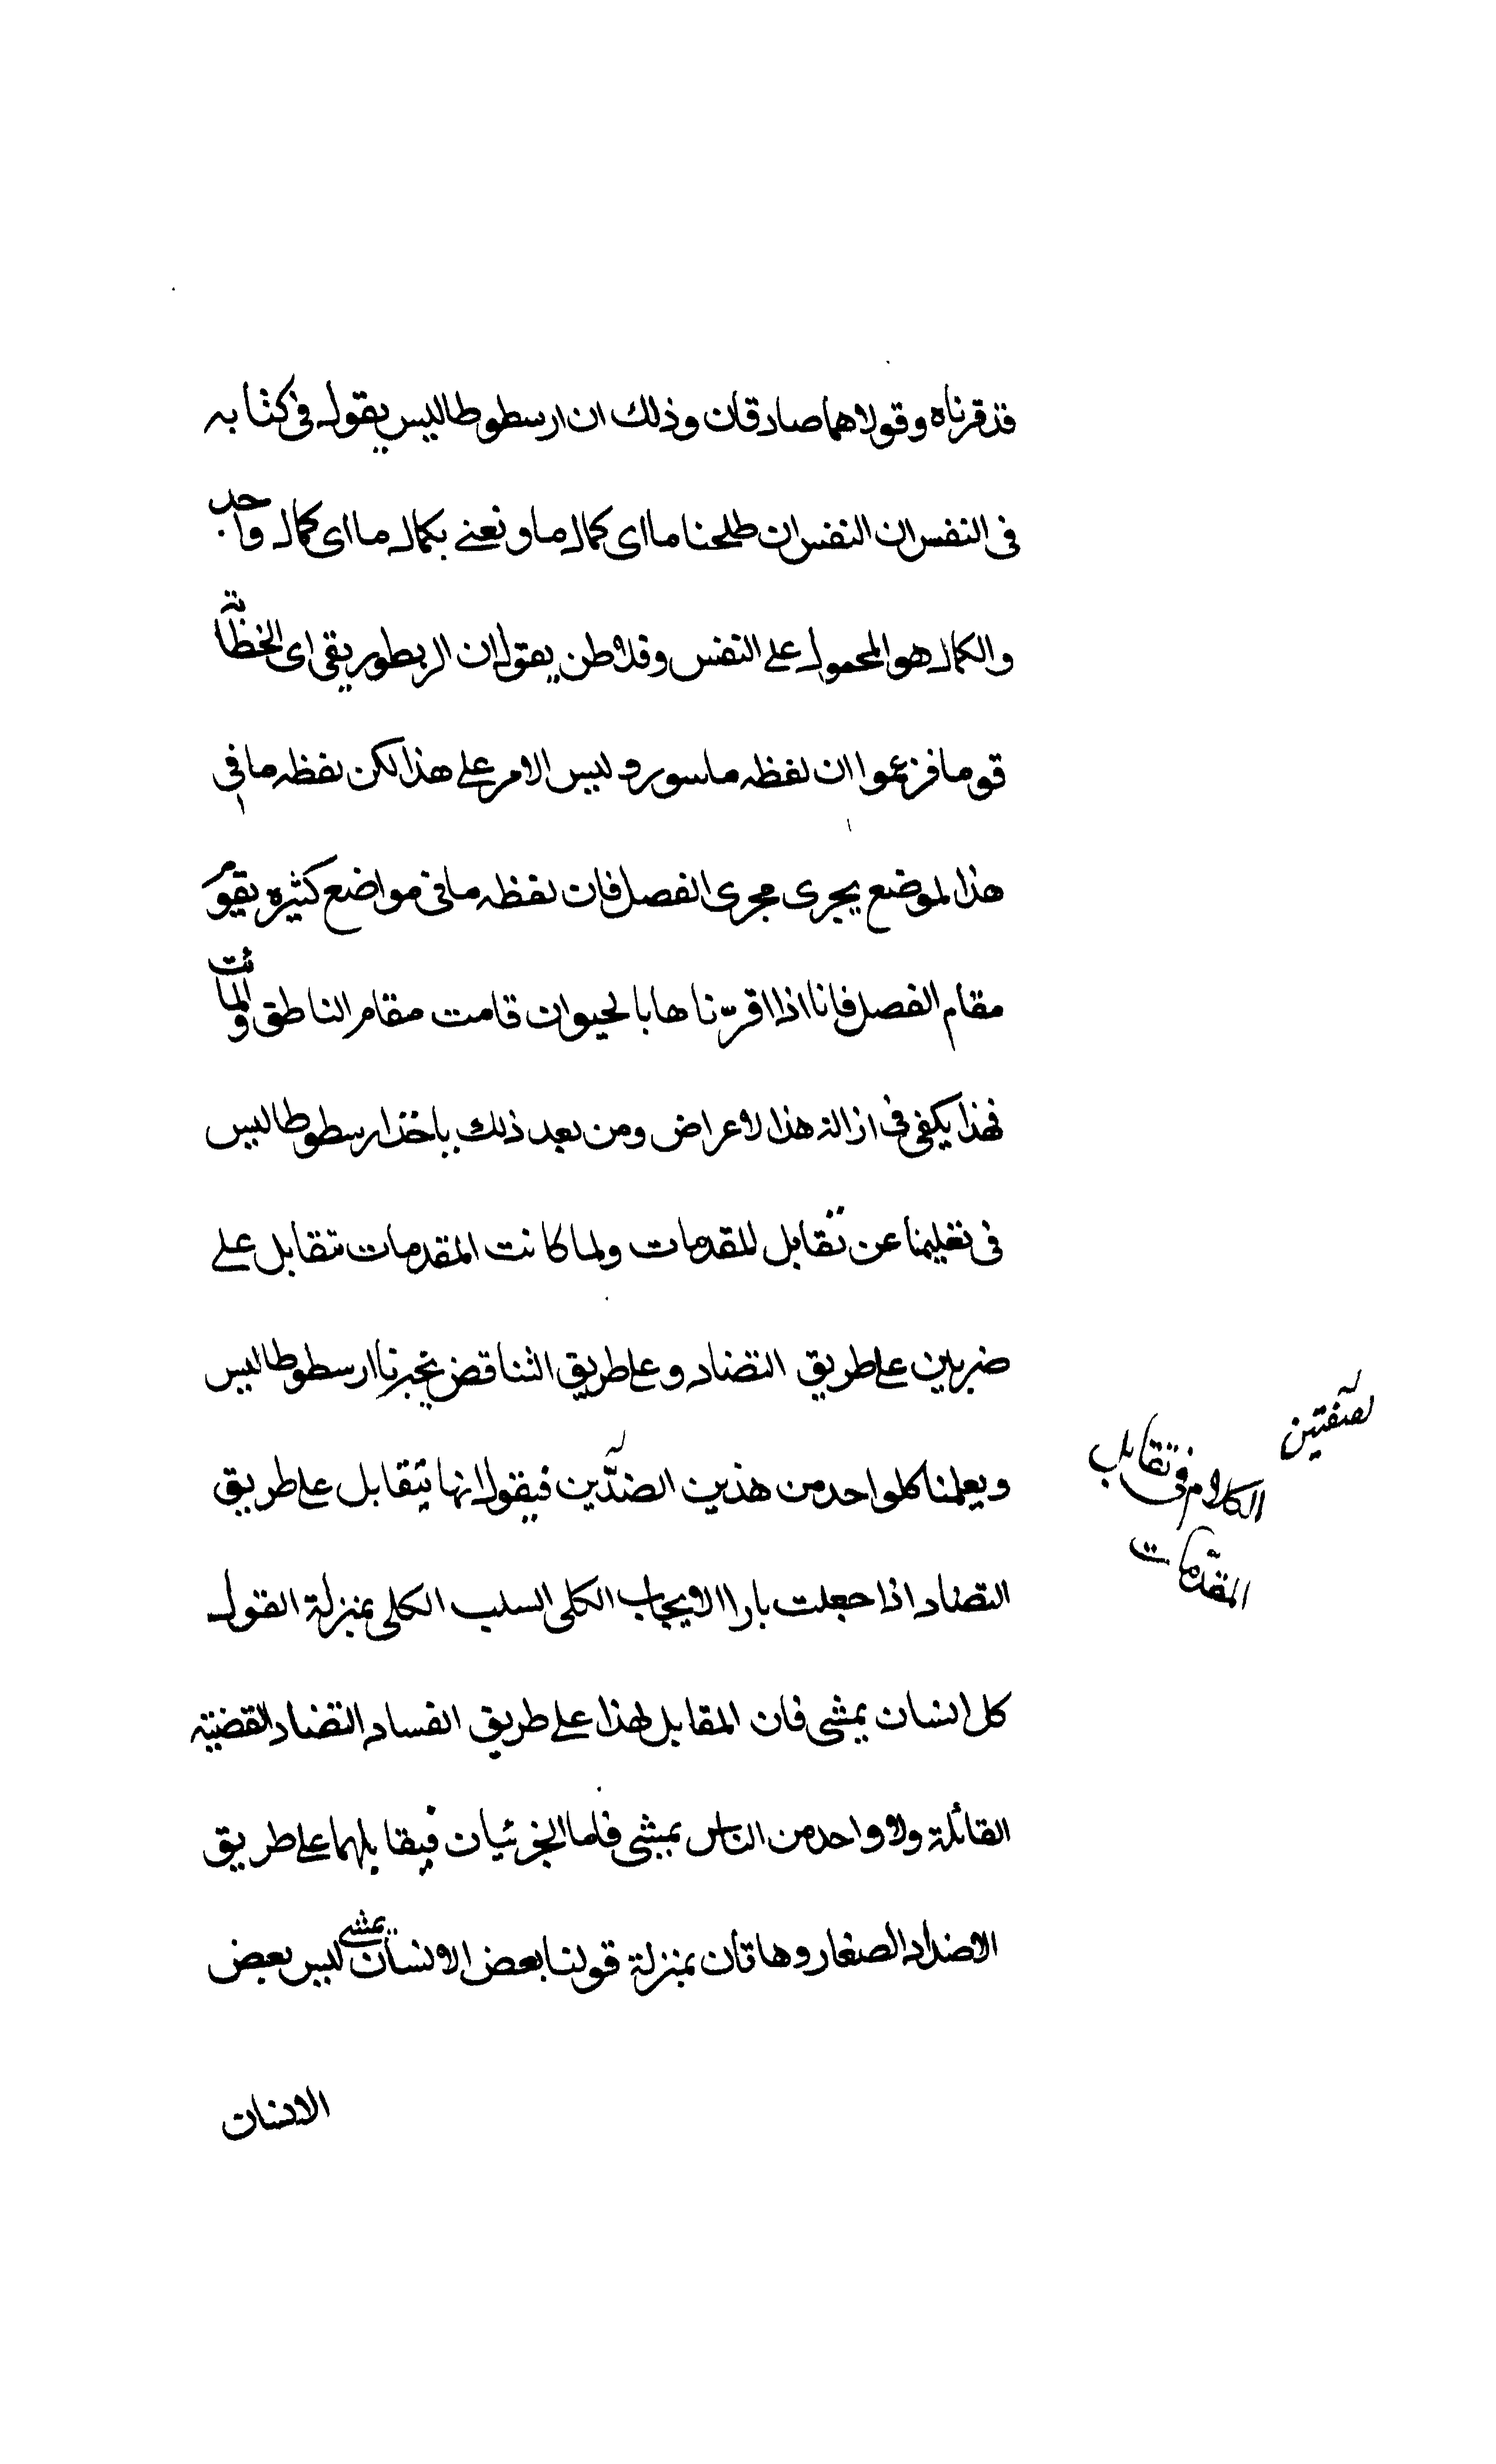 قد قرناه وقولاهما صادقان وذلك ان ارسطوطاليس يقول فى كتابه
فى النفس ان النفس ان طلحنا ما اى كمال ما ونعنى بكمال ما اى كمال واحد
والكمال هو المحمول على النفس وفلاطن يقول ان الريطوريقى اى الخطابة
قوما فزعموا ان لفظه ما سور وليس الامر على هذا لكن لفظه ما فى
هذا لموضع يجرى مجرى الفصل فان لفظه ما فى مواضع كثيره يقوم
مقام الفصل فانا اذا اقرّنا ها بالحيوان قامت مقام الناطق والمائت
فهذا يكفى فى ازالة هذا لاعراض ومن بعد ذلك ياخذ ارسطوطاليس
فى تعليمنا عن تقابل للمقدمات ولما كانت المقدمات تتقابل على
ضربين على طريق التضاد وعلى طريق التناقض يخبرنا ارسطوطاليس
ويعلمنا كلواحد من هذين الضدّين فيقول انها يتقابل على طريق
لصنفتين
الكلام فى تقابل
المقدمات
التضاد اذا جعلت بارا الايجاب الكلى السلب الكلى بمنزلة القول
كل انسان يمشى فان المقابل لهذا على طريق الفساد التضاد القضية
القائلة ولا واحد من الناس يمشى فاما الجزئيات فيقابلهما على طريق
الاضداد الصغار وهاتان بمنزلة قولنا بعض الانسان يمشى ليس بعض
الانسان